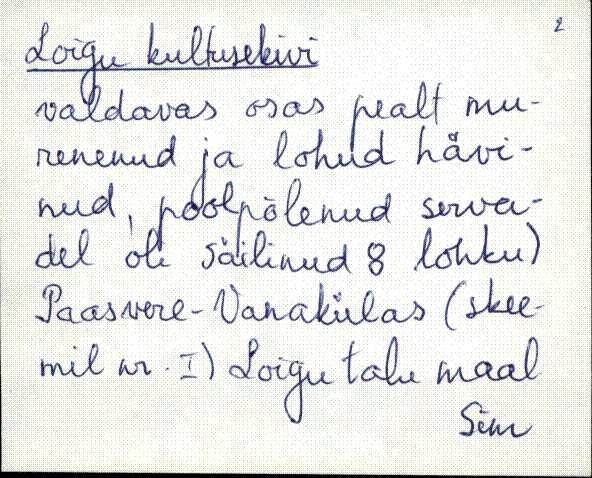 2
Loigu kultusekivi
valdavas osas pealt mu-
renenud ja lohud hävi-
nud, poolpõlenud serva-
del oli säilinud 8 lohku)
Paasvere-Vanakülas (skee-
mil nr. I) Loigu talu maal